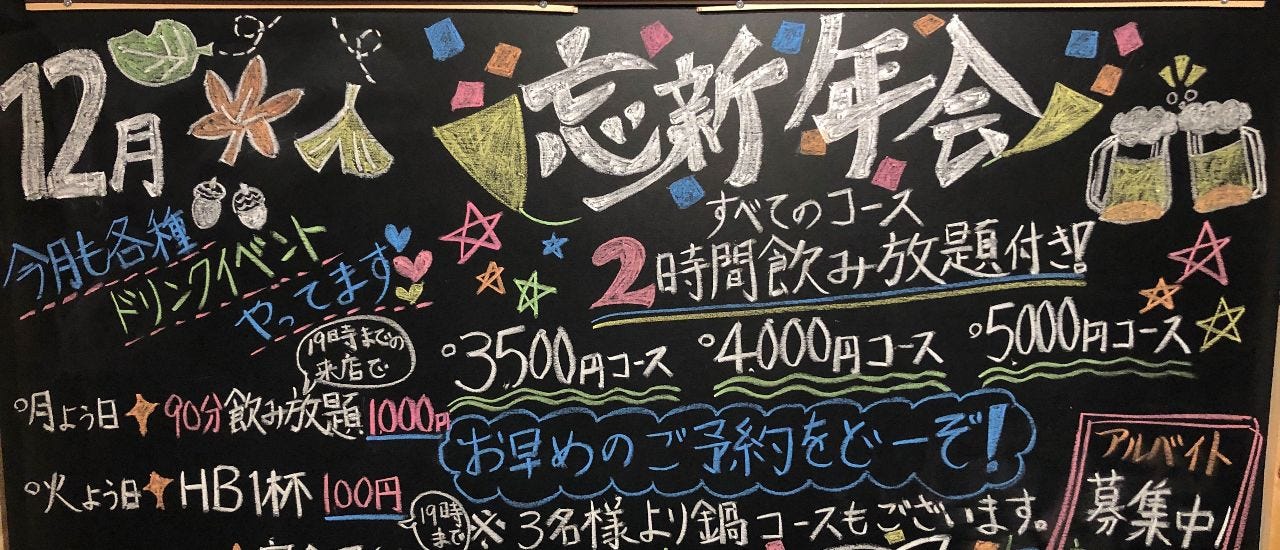 12月
忘新年会
すべてのコース
2時間飲み放題付き!
今月も各種
ドリンクイベント
やってます
19時までの
来店で
。月よう日 90分飲み放題 1000円
。火よう日 HB1杯 100円
19時
まで
。3500円コース 。4,000円コース 。5000円コース
お早めのご予約をどーぞ!
※3名様より鍋コースもございます。
アルバイト
募集中!